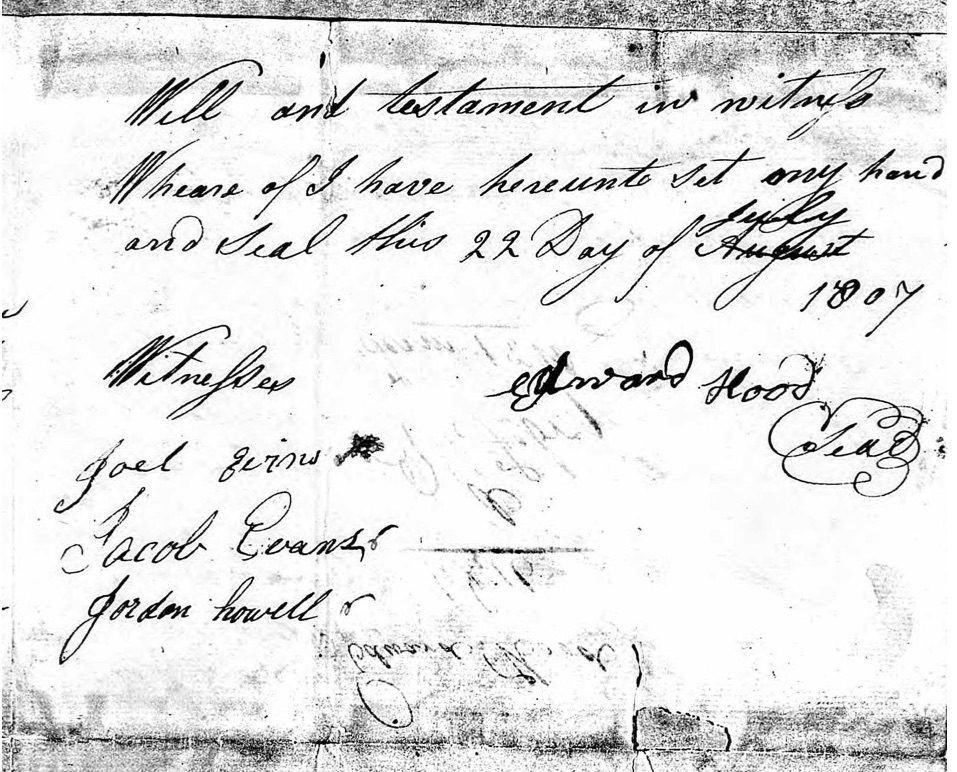 Will and testament in witness
Wheare of I have hereunto set my hand
and Seal this 22 Day of August July
1807
Witnesses
edward Hood
Seal
Joel
Jacob Evans
Jordan howell